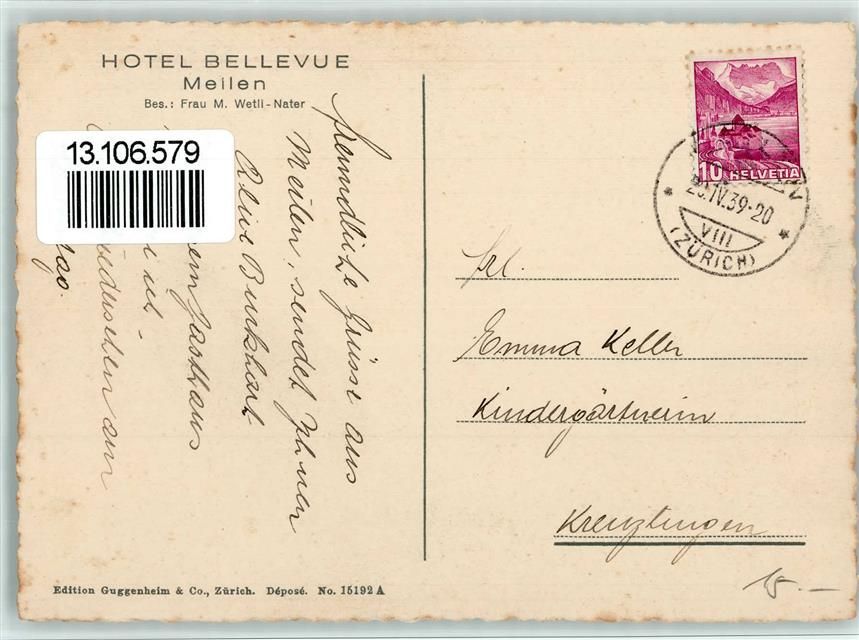 HOTEL BELLEVUE
Meilen
Bes.: Frau M. Wetli-Nater
13.106.579
freundliche Grüsse aus
Meilen, sendet Ihnen
Burkhart
Gasthaus
am
10 HELVETIA
IV.39-20
VIII
(ZÜRICH)
Frl.
Emma Keller
Kindergärtnerin
Kreuzlingen
Edition Guggenheim & Co., Zürich. Déposé. No. 15192 A